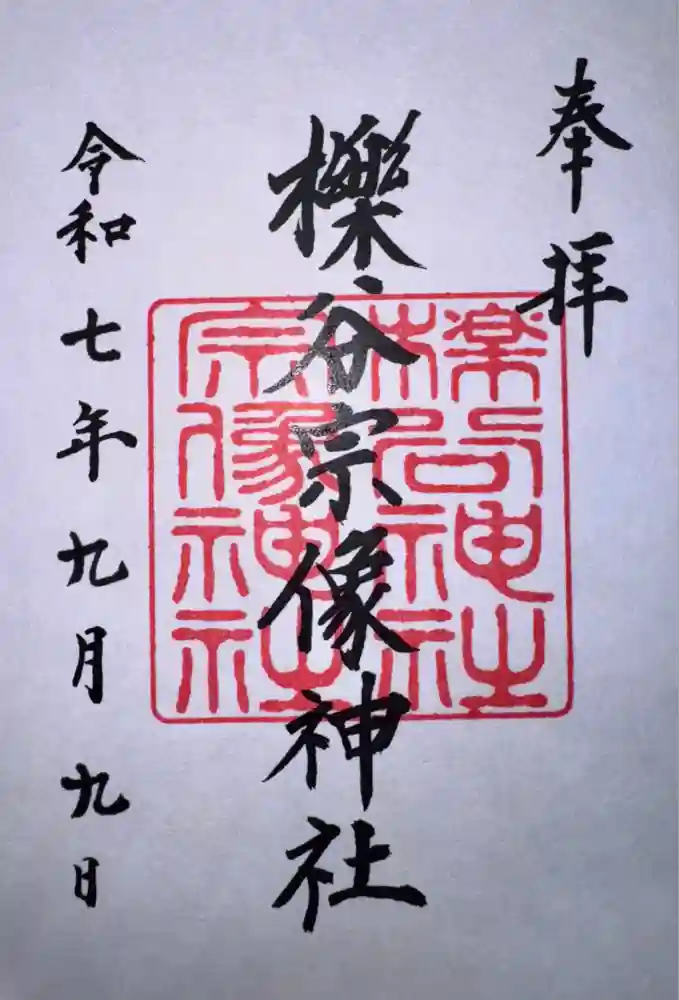 奉拝
櫟谷宗像神社
令和七年九月九日
櫟谷神社
宗像神社